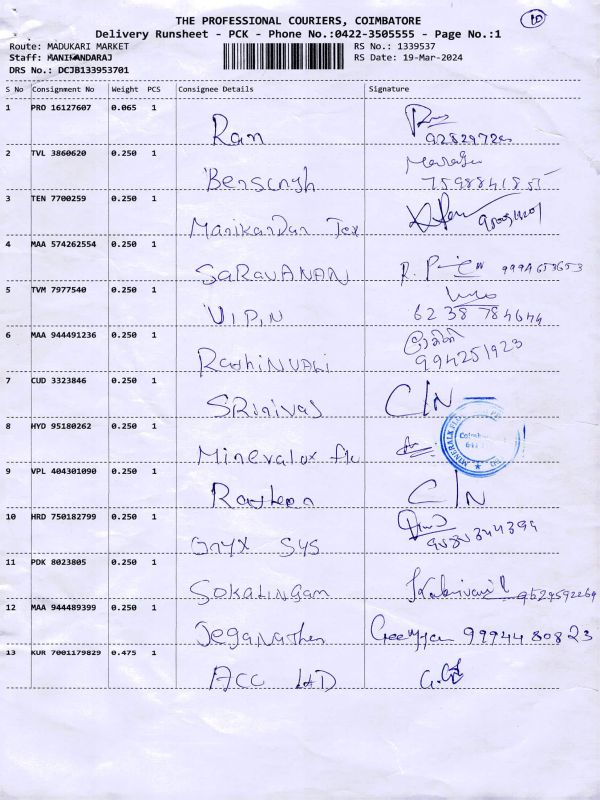 10
THE PROFESSIONAL COURIERS, COIMBATORE
Delivery Runsheet - PCK - Phone No.:0422-3505555 - Page No.:1
Route: MADUKARI MARKET RS No.: 1339537
Staff: MANIKANDARAJ RS Date: 19-Mar-2024
DRS No.: DCJB133953701
S No Consignment No Weight PCS Consignee Details Signature
1 PRO 16127607 0.065 1 Ram
2 TVL 3860620 0.250 1 Bensingh
7598841855
3 TEN 7700259 0.250 1 Manikandan Tex
4 MAA 574262554 0.250 1 SARAVANAN 9994653653
5 TVM 7977540 0.250 1 VIPIN
6238784644
6 MAA 944491236 0.250 1
994251923
7 CUD 3323846 0.250 1 SRinivas C/N
8 HYD 95180262 0.250 1 Mineralox
9 VPL 404301090 0.250 1 C/N
10 HRD 750182799 0.250 1 Onyx SYS
9585344399
11 PDK 8023805 0.250 1 SOKALINGAM 9629592269
12 MAA 944489399 0.250 1 Jeganathan 9994480823
13 KUR 7001179829 0.475 1 ACC LtD